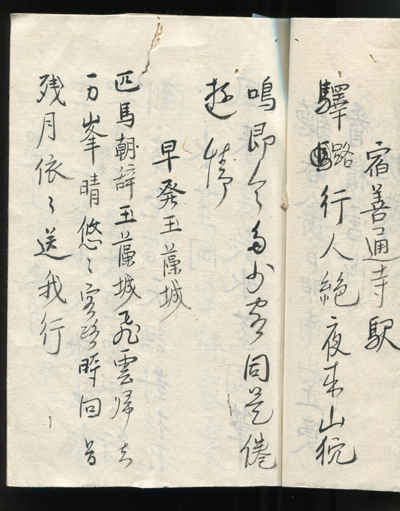 宿善通寺駅
驛路行人絶夜来山狖
鳴即今多少客同是倦
遊情
早發玉藻城
匹馬朝辞玉藻城飛雲帰去
万峯晴悠々客路時回首
残月依々送我行